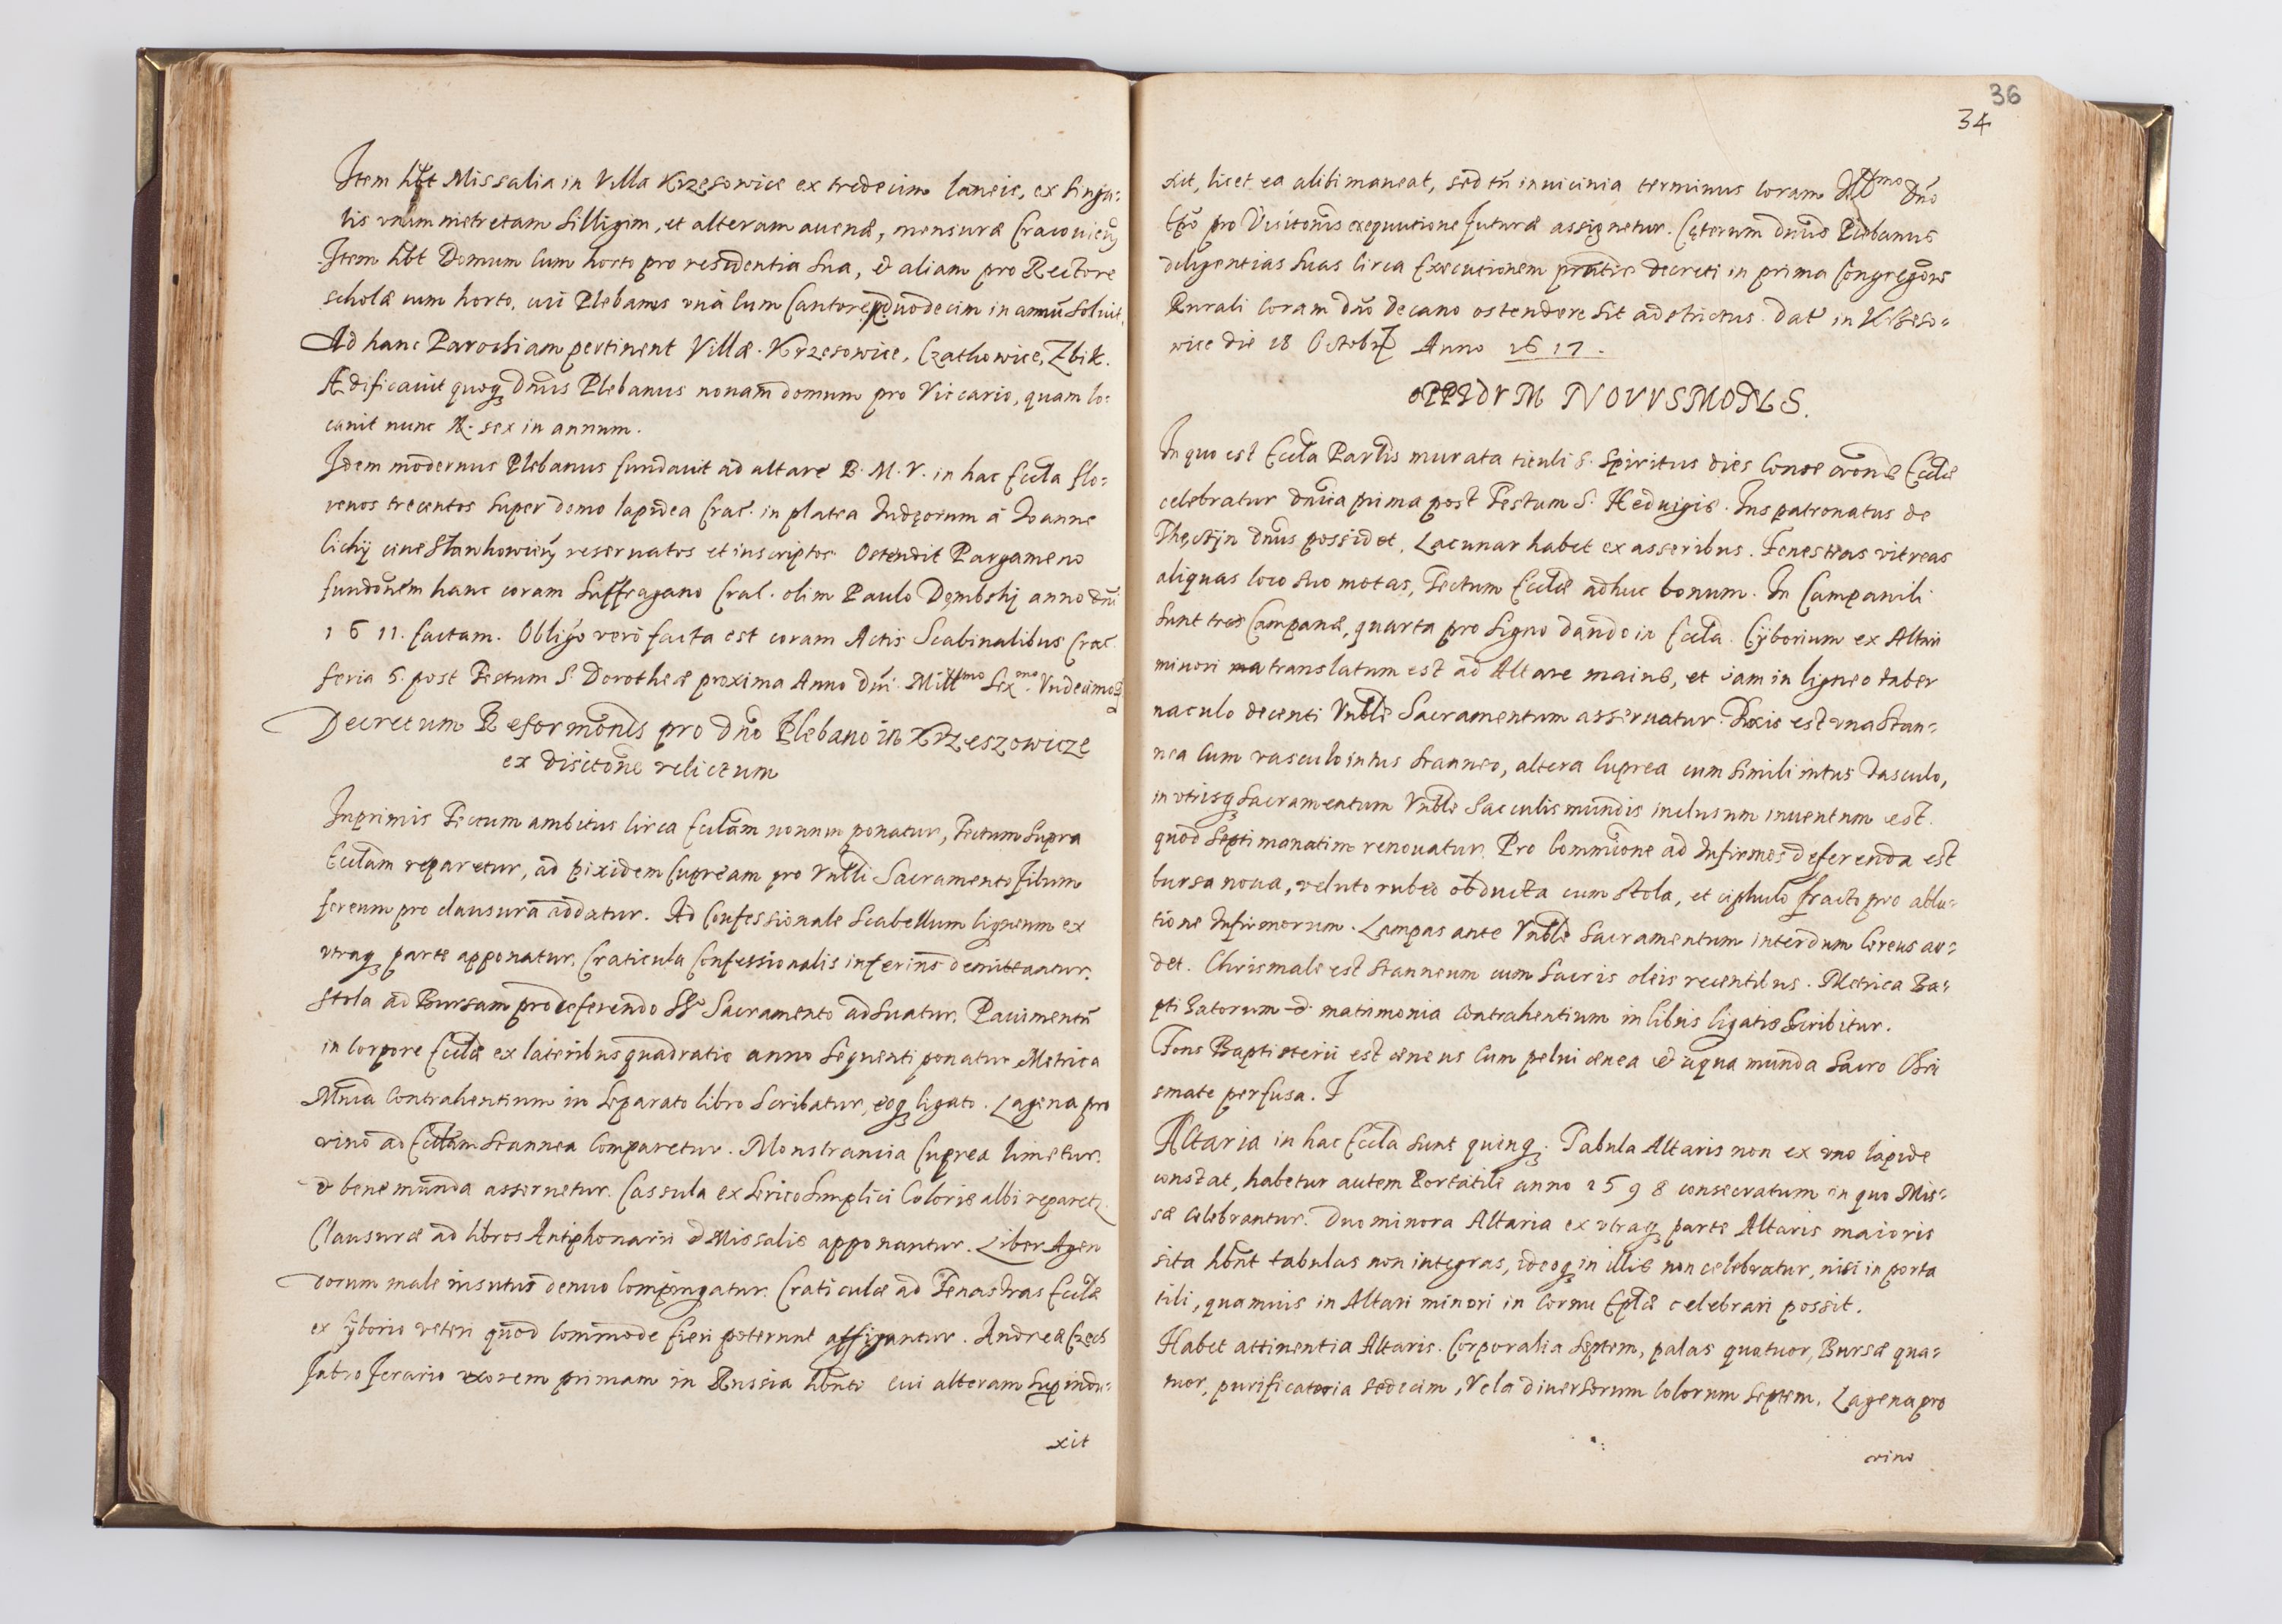 Item hbt Missalia in Villa Krzesowice ex tredecim laneis, ex singu-
lis vnam metretam siliginis, et alteram auenæ, mensuræ Cracouien
Item hbt Domum cum horto pro residentia sua, & aliam pro Rectore
scholæ cum horto, cui Plebanus vnà cum Cantore duodecim in annũ soluit.
Ad hanc Parochiam pertinent Villæ. Krzesowice, Czathowice, Zbik.
Ædificauit quoq Dnus Plebanus nouam domum pro Viccario, quam lo-
cauit nunc fl. sex in annum.
Idem modernus Plebanus fundauit ad altare B. M. V. in hac Eccla flo-
renos trecentos super domo lapidea Crac. in platea Judęorum à Joanne
Cichy ciue reseruatos et inscriptos Ostendit Pargameno
fundonem hanc coram Suffragano Crac. olim Paulo Dęmbskij anno dni
1611. factam. Obligo verò facta est coram Actis Scabinalibus Crac
feria 6. post Festum S. Dorotheæ proxima Anno dni. Mill mo Sex mo. Vndecimo
Decretum Reformonis pro dno Plebano in Krzeszowicze
ex visitone relictum
Inprimis Tectum ambitus circa Ecclam nouum ponatur, Tectum supra
Ecclam reparetur, ad pixidem cupream pro Vnbli Sacramento filum
fereum pro clausura addatur. Ad Confessionale scabellum ligneum ex
vtraq parte apponatur. Craticula Confessionalis inferius demittantur.
Stola ad Bursam pro deferendo SSo Sacramento adsuatur. Pauimentũ
in corpore Ecclæ ex lateribus quadratis anno sequenti ponatur Metrica
Mnia Contrahentium in separato libro scribatur, eoq ligato. Lagena pro
vino ad Ecclam stannea comparetur. Monstrancia cuprea limetur.
& bene munda assernetur. Cassula ex serico simplici Coloris albi reparetr.
Clausuræ ad libros Antiphonarii & Missalis apponantur. Liber Agen
dorum male insutus denuo compingatur. Craticulæ ad Fenastras Ecclæ
ex cyborio veteri quod commode fieri poterunt affigantur. Andreæ Czech
fabro ferario vxorem primam in Russia hbnti cui alteram supindu-
xit
36
34
xit, licet ea alibi maneat, sed tn in vicinia terminus coram Ill mo Dno
Epo pro Visitonis exequutione futuræ assignetur. Cęterum dnus Plebanus
diligentias suas circa Executionem decreti in prima Congregone
Rurali coram dno Decano ostendere sit adstrictus. Dat in Krzeso-
wice die 18 Octobr Anno 1617.
OPPIDVM NOVVSMONS.
In quo est Eccla Parlis murata tituli S. Spiritus dies Ecclæ
celebratur dnica prima post Festum S. Heduigis. Ius patronatus de
Thęctÿn dnus possidet. Lacunar habet ex asseribus. Fenestras vitreas
aliquas loco suo motas, Tectum Ecclæ adhuc bonum. In Campanili
sunt tres Campanæ, quarta pro signo dando in Eccla. Cÿborium ex Altari
minori translatum est ad Altare maius, et iam in ligneo taber
naculo decenti Vnble Sacramentum asseruatur. Pixis est vna stan-
nea cum vasculo intus stanneo, altera cuprea cum simili intus vasculo,
in vtrisq Sacramentum Vnble sacculis mundis inclusum inuentum est.
quod septimanatim renouatur. Pro Communione ad Infirmos deferenda est
bursa noua, veluto rubeo obducta cum stola, et ciphulo fracto pro ablu-
tione Infirmorum. Lampas ante Vnble Sacramentum interdum Cereus ar-
det. Chrismale est stanneum cum sacris oleis recentibus. Metrica Ba-
ptisatorum & matrimonia contrahentium in libris ligatis scribitur.
Fons Baptisterii est æneus cum pelui ænea & aqua munda sacro Chri
smate perfusa.
Altaria in hac Eccla sunt quinq. Tabula Altaris non ex vno lapide
constat, habetur autem Portatile anno 1598 consecratum in quo Mis-
sæ celebrantur. Duo minora Altaria ex vtraq parte Altaris maioris
sita hbnt tabulas non integras, ideoq in illis non celebratur, nisi in porta
tili, quamuis in Altari minori in Cornu Eplæ celebrari possit.
Habet attinentia Altaris. Corporalia septem, palas quatuor, Bursæ qua-
tuor, purificatoria sedecim, Vela diuersorum colorum septem. Lagena pro
vino